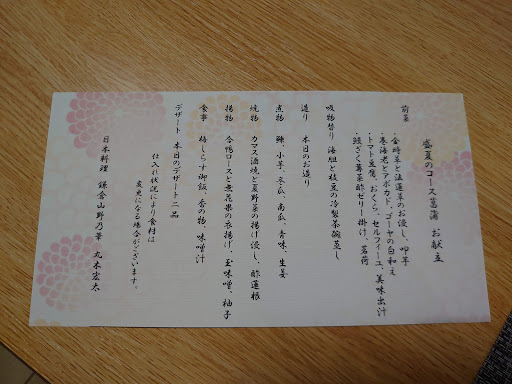 盛夏のコース菖蒲 お献立
前菜
・金時草と法蓮草のお浸し、叩芋
・巻海老とアボカド、ゴーヤの白和え
・トマト豆腐、おくら、セルフィーユ、美味出汁
・鰻ざく蓴菜酢ゼリー掛け、茗荷
吸物替り 海胆と枝豆の冷製茶碗蒸し
造り 本日のお造り
煮物 鱧、小芋、冬瓜、南瓜、青味、生姜
焼物 カマス酒焼と夏野菜の揚げ浸し、酢蓮根
揚物 合鴨ロースと無花果の衣揚げ、玉味噌、柚子
食事 釜しらす御飯、香の物、味噌汁
デザート 本日のデザート二品
仕入れ状況により食材は
変更になる場合がございます。
日本料理 鎌倉山野乃華 丸本宏太